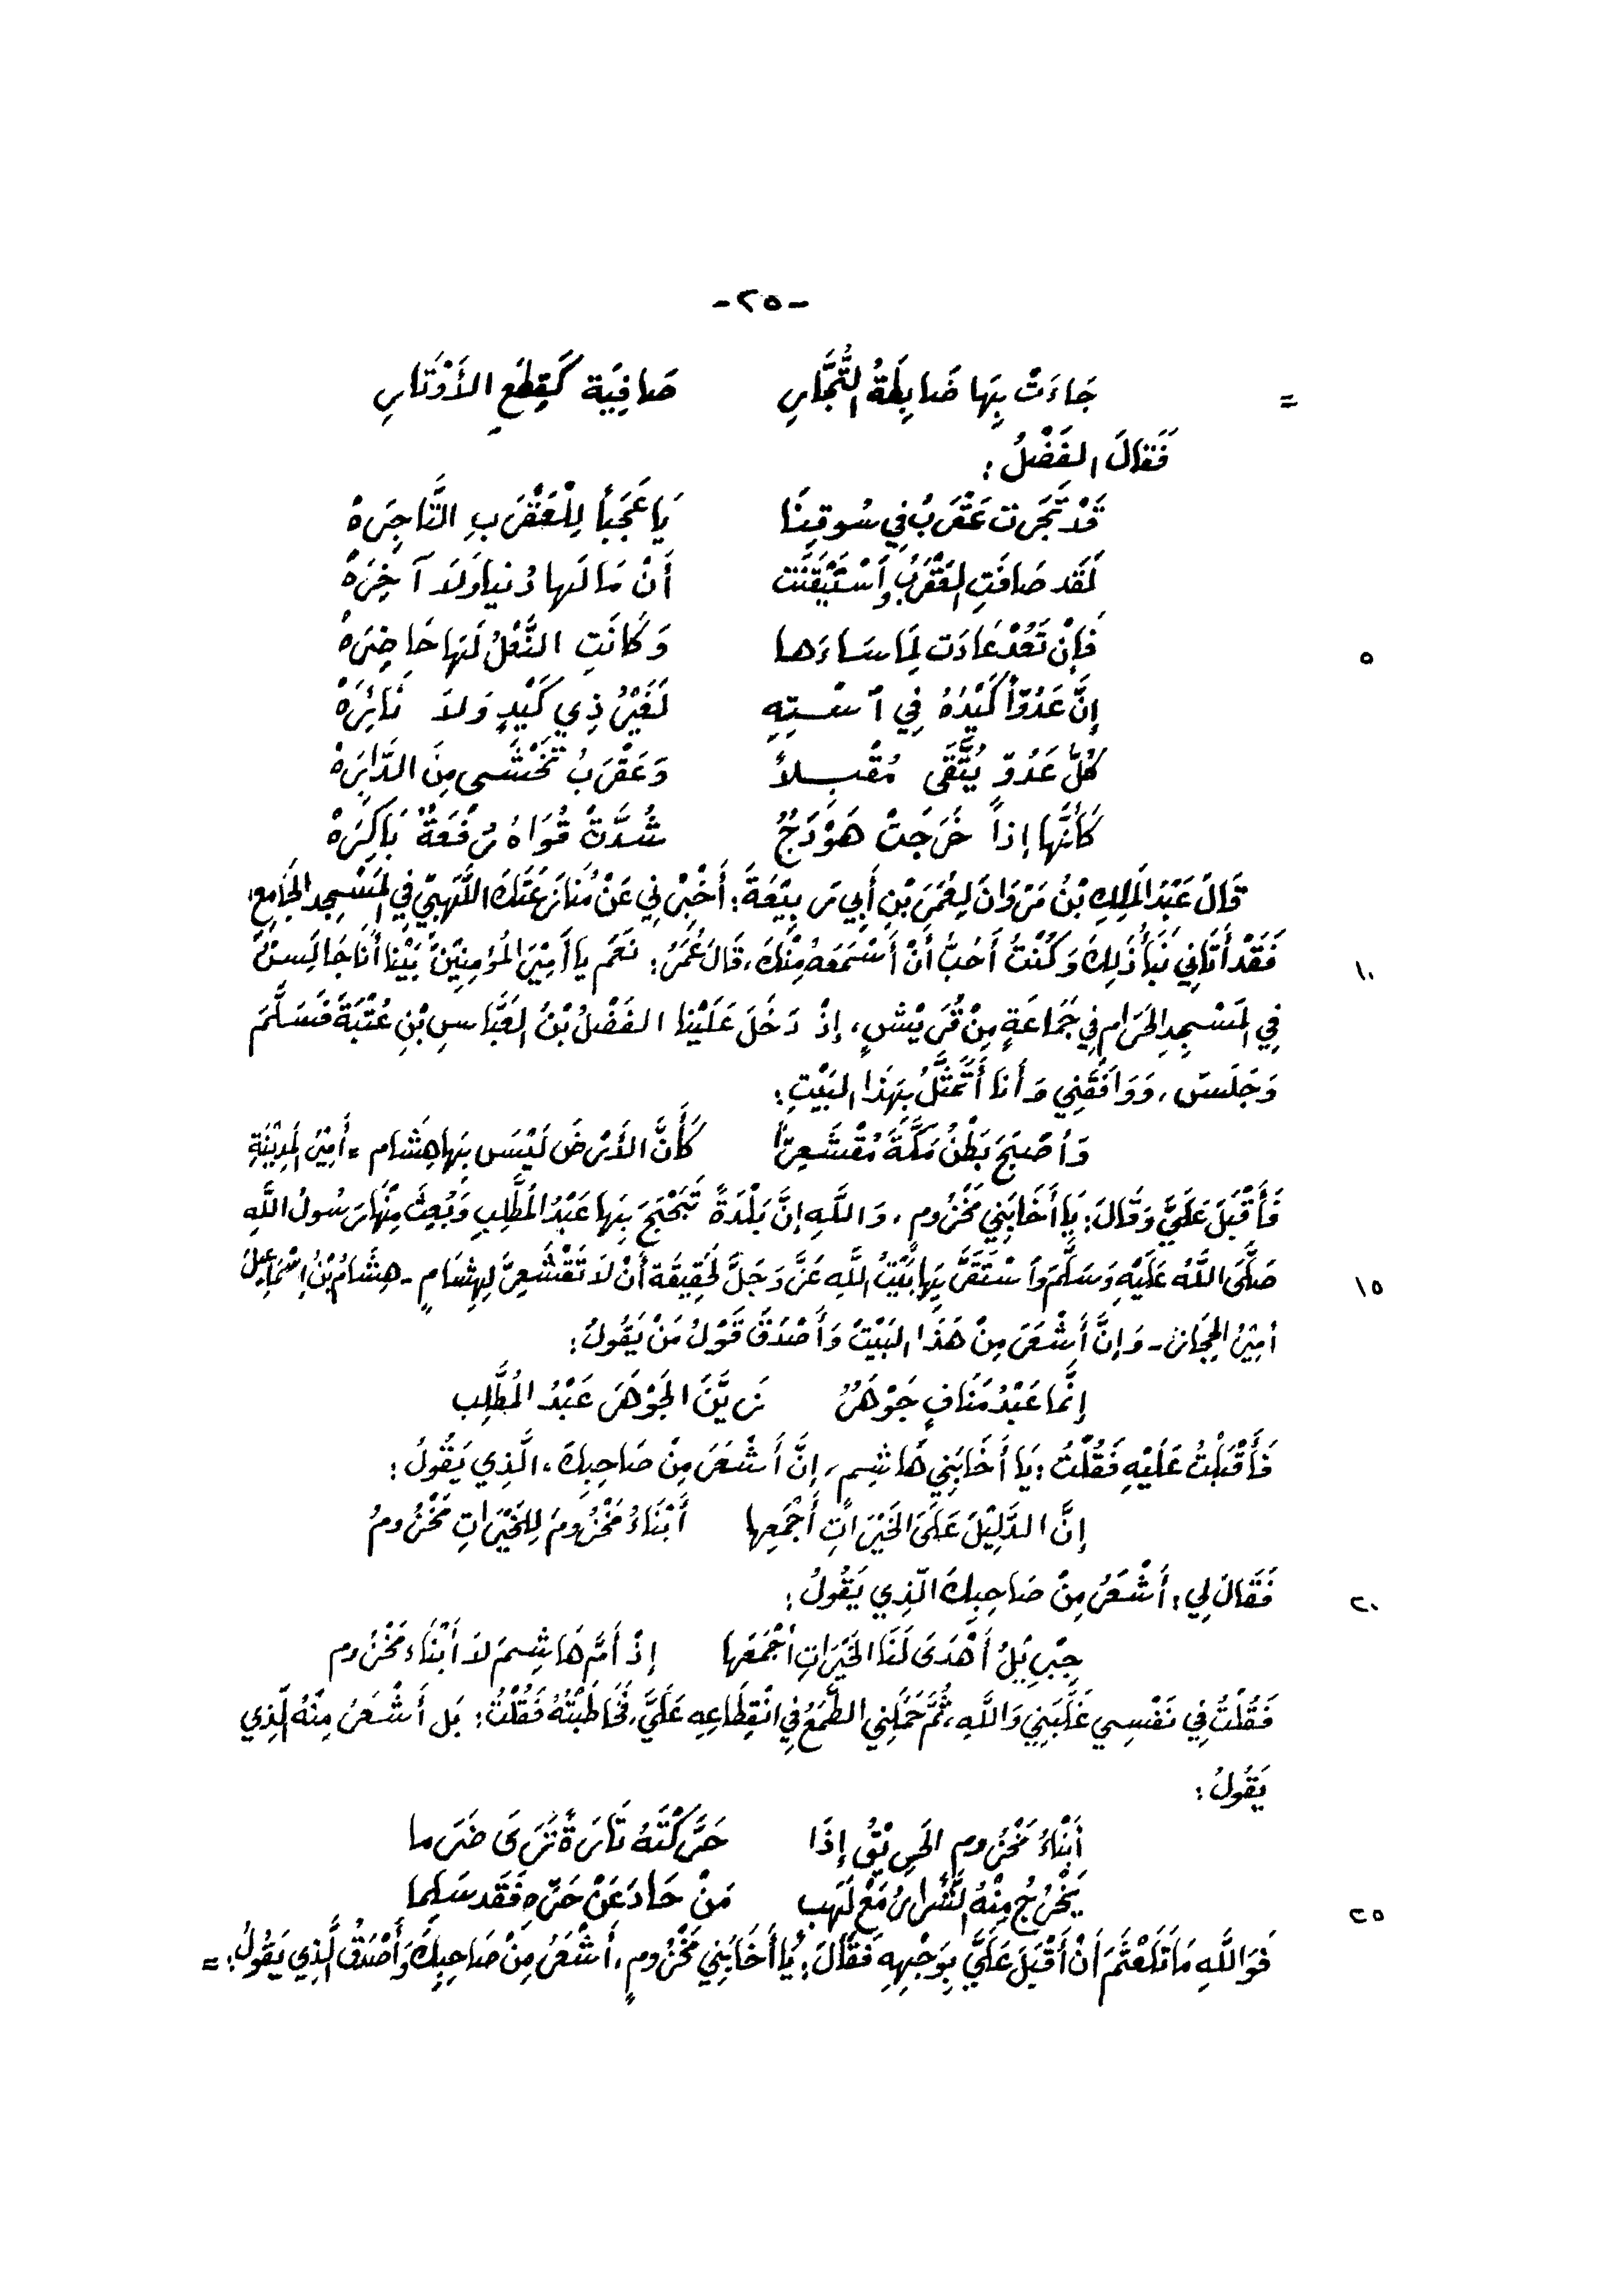 -٢٥-
= جَاءَتْ بِهَا ضَابِطَةُ التُّجَّارِ صَافِيَة كَقِطَعِ الأَوْتَارِ
فَقَالَ الفَضْلُ :
قَدْ تَجَرت عَقْرَبٌ فِي سُوقِنَا يَا عَجَبَاً لِلْعَقْرَبِ التَّاجِرَهْ
لَقَد صَافَتِ العَقْرَبُ وَاسْتَيْقَنَت أَنْ مَا لَها دُنيا وَلاَ آخِرَهْ
٥ فَإنْ تَعُدْ عَادَت لِمَا سَاءَها وَكَانَتِ النَّعْلُ لَهَا حَاضِرَهْ
إنَّ عَدُوّاً كَيْدُهُ فِي آسْتِهِ لَغَيْرُ ذِي كَيْدٍ وَلاَ نَائِرَهْ
كُلُّ عَدُوّ يُتَّقَى مُقْبِلاً وَعَقْرَبُ تُخْشَى مِنَ الدَّابِرَهْ
كَأَنَّها إذاً خَرَجَتْ هَوْدَجٌ شُدَّتْ قُوَاهُ رُفْعَةٌ بَاكِرَهْ
قَالَ عَبْدُ المَلِكِ بْنُ مَرْوَانَ لِعُمَرَ بْنِ أَبِي رَبِيْعَةَ : أَخْبِرْنِي عَنْ مُنَازَعَتَكَ اللَّهَبِيّ فِي المَسْجِد الجَامِعِ،
١٠ فَقَدْ أَتَانِي نَبَأُ ذَلِكَ وَكُنْتُ أَحُبُّ أَنْ أَسْمَعَهُ مِنْكَ، قَالَ عُمَرُ : نَعَم يا أَمِيْرَ المُؤمِنِيْنَ بَيْنا أَنَا جَالِسٌ
فِي المَسْجِدِ الحَرَامِ فِي جَمَاعَةٍ مِنْ قُرَيْشٍ، إذْ دَخَلَ عَلَيْنا الفَضْلُ بْنُ العَبَّاسِ بْنِ عُتْبَةَ فَسَلَّمَ
وَجَلَسَ، وَوَافَقَنِي وَأَنا أَتَمَثَّلُ بِهَذَا البَيْتِ :
وَأَصْبَحَ بَطْنُ مَكَّةَ مُقْشَعِرّاً كَأَنَّ الأَرْضَ لَيْسَ بِهَا هِشَام = أَمِيْرَ المَدِيْنَةِ
فَأَقْبَلَ عَلَيَّ وَقَالَ : يَا أَخَا بَنِي مَخْزُومٍ، وَاللَّهِ إنَّ بَلْدَةً تَبَحْبَحَ بِهَا عَبْدُ المُطَّلِبِ وَبُعِثَ مِنْهَا رَسُولُ اللَّهِ
١٥ صَلَّى اللَّهُ عَلَيْهِ وَسَلَّمَ وَاسْتَقَرَّ بِهَا بَيْتُ اللَّهِ عَزَّ وَجَلَّ لَحَقِيقَة أَنْ لاَ تَقْشَعِرَّ لِهِشَامٍ - هِشَامُ بْنُ إِسْمَاعِيلَ
أَمِيْرُ الحِجَازِ - وَإنَّ أَشْعَرَ مِنْ هَذَا البَيْتَ وَأَصْدَقَ قَوْلُ مَنْ يَقُولُ :
إنَّما عَبْدُ مَنَافٍ جَوْهَرٌ زَيَّنَ الجَوْهَرَ عَبْدُ المُطَّلِب
فَأَقْبَلْتُ عَلَيْهِ فَقُلْتُ : يَا أَخَا بَنِي هَاشِمٍ، إنَّ أَشْعَرَ مِنْ صَاحِبِكَ، الَّذِي يَقُولُ :
إنَّ الدَّلِيْلَ عَلَى الخَيْرَاتِ أَجْمَعِها أَبْنَاءُ مَخْزُومَ لِلخَيْرَاتِ مَخْزُومُ
٢٠ فَقَالَ لِي : أَشْعَرُ مِنْ صَاحِبِكَ الّذِي يَقُولُ :
جِبْرِيْلُ أَهْدَى لَنَا الخَيْرَاتِ أَجْمَعَها إذْ أَمَّ هَاشِمَ لاَ أَبْنَاءَ مَخْزُوم
فَقُلْتُ فِي نَفْسِي غَلَبَنِي وَاللَّهِ، ثُمَّ حَمَلَنِي الطَّمَعُ فِي انْقِطَاعِهِ عَلَيَّ، فَخَاطَبْتُهُ فَقُلْتُ : بَل أَشْعَرُ مِنْهُ الَّذِي
يَقُولُ :
أَبْنَاءُ مَخْزُوم الحَرِيْقُ إذَا حَرَّكْتَهُ تَارَةً تَرَى ضَرَما
٢٥ يَخْرُجُ مِنْهُ الشَّرارُ مَعْ لَهَبٍ مَنْ حَادَ عَنْ حَرِّهِ فَقَد سَلِما
فَوَاللَّهِ مَا تَلَعْثَمَ أَنْ أَقْبَلَ عَلَيَّ بِوَجْهِهِ فَقَالَ : يَا أَخَا بَنِي مَخْزُومٍ، أَشْعَرُ مِنْ صَاحِبِكَ وَأَصْدَقُ الَّذِي يَقُولُ : =